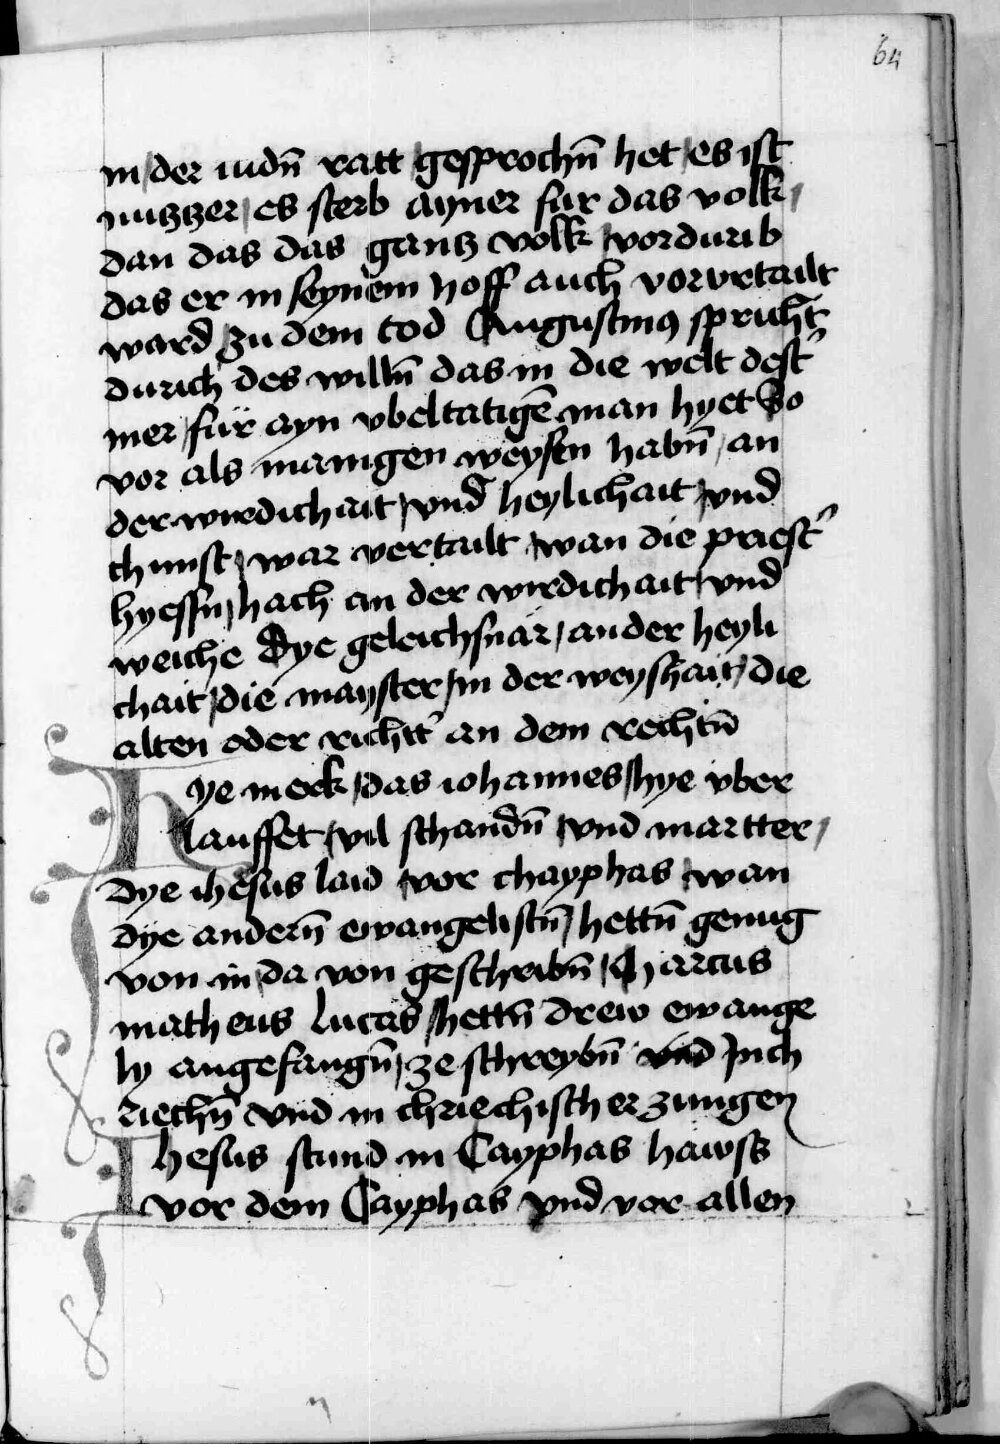 64
in / der iudn̄ ratt / gesprochn̄ het / es ist
nutzzer / es sterb ayner fur das volk /
dan das das gantz volk / vordurib
das er in seynem hoff auch vorvrtailt
ward / zu dem tod Augustinꝯ spricht
durich des willn̄ das in die welt dest̉
mer / für ayn vbeltatigē man hyet So
vor als manigen weysen habn̄ / an
der wirdichait / vnd heylichait / vnd
chunst / war vertailt / wan die priest̉
hyessn̄ / hach an der wirdichait / vnd
weiche Dye geleichsnär / an der heyli
chait / die mayster / in der weyshait / die
alten oder richt̉ an dem rechtn̄
Hye merk / das iohannes / hye vber
lauffet / vil schandn̄ / vnd martter /
Dye ihesus laid / vor chayphas / wan
dye andern̄ ewangelistn̄ / hettn̄ genug
von in / da von geschribn̄ / Marcus
matheus Lucas / hettn̄ drew ewange
ly angefangn̄ / ze schreybn̄ vnd Jnch
riechn̄ vnd in chriechischer zungen
Ihesus stund in Cayphas hawss
vor dem Cayphas vnd vor allen